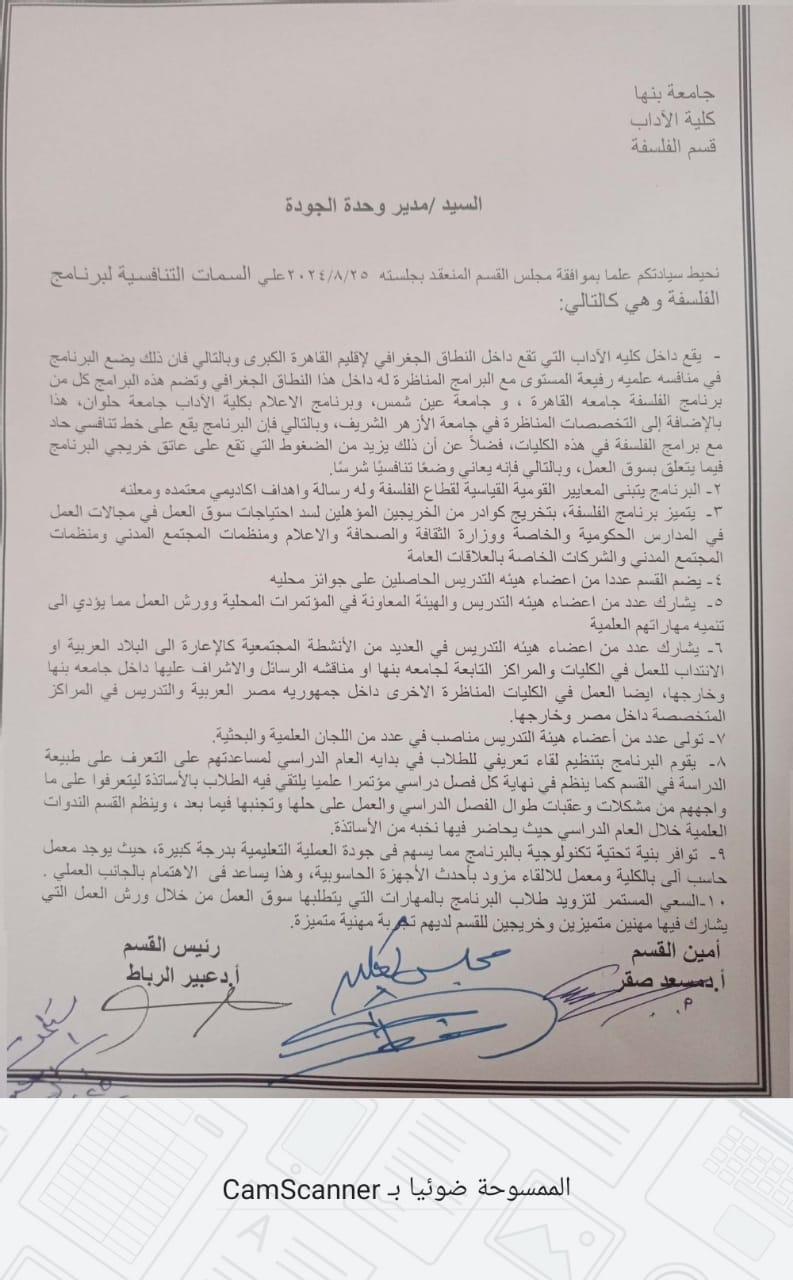 جامعة بنها
كلية الآداب
قسم الفلسفة
السيد /مدير وحدة الجودة
نحيط سيادتكم علما بموافقة مجلس القسم المنعقد بجلسته ٢٠٢٤/٨/٢٥علي السمات التنافسية لبرنامج
الفلسفة وهي كالتالي:
- يقع داخل كليه الآداب التي تقع داخل النطاق الجغرافي لإقليم القاهرة الكبرى وبالتالي فان ذلك يضع البرنامج
في منافسه علميه رفيعة المستوى مع البرامج المناظرة له داخل هذا النطاق الجغرافي وتضم هذه البرامج كل من
برنامج الفلسفة جامعه القاهرة ، و جامعة عين شمس، وبرنامج الاعلام بكلية الآداب جامعة حلوان، هذا
بالإضافة إلى التخصصات المناظرة في جامعة الأزهر الشريف، وبالتالي فإن البرنامج يقع على خط تنافسي حاد
مع برامج الفلسفة في هذه الكليات، فضلاً عن أن ذلك يزيد من الضغوط التي تقع على عاتق خريجي البرنامج
فيما يتعلق بسوق العمل، وبالتالي فإنه يعاني وضعًا تنافسيًا شرسًا.
٢- البرنامج يتبنى المعايير القومية القياسية لقطاع الفلسفة وله رسالة واهداف اكاديمي معتمده ومعلنه
٣- يتميز برنامج الفلسفة، بتخريج كوادر من الخريجين المؤهلين لسد احتياجات سوق العمل في مجالات العمل
في المدارس الحكومية والخاصة ووزارة الثقافة والصحافة والاعلام ومنظمات المجتمع المدني ومنظمات
المجتمع المدني والشركات الخاصة بالعلاقات العامة
٤- يضم القسم عددا من اعضاء هيئه التدريس الحاصلين على جوائز محليه
٥- يشارك عدد من اعضاء هيئه التدريس والهيئة المعاونة في المؤتمرات المحلية وورش العمل مما يؤدي الى
تنميه مهاراتهم العلمية
٦- يشارك عدد من اعضاء هيئه التدريس في العديد من الأنشطة المجتمعية كالإعارة الى البلاد العربية او
الانتداب للعمل في الكليات والمراكز التابعة لجامعه بنها او مناقشه الرسائل والاشراف عليها داخل جامعه بنها
وخارجها، ايضا العمل في الكليات المناظرة الاخرى داخل جمهوريه مصر العربية والتدريس في المراكز
المتخصصة داخل مصر وخارجها.
٧- تولى عدد من أعضاء هيئة التدريس مناصب في عدد من اللجان العلمية والبحثية.
٨- يقوم البرنامج بتنظيم لقاء تعريفي للطلاب في بدايه العام الدراسي لمساعدتهم على التعرف على طبيعة
الدراسة في القسم كما ينظم في نهاية كل فصل دراسي مؤتمرا علميا يلتقي فيه الطلاب بالأساتذة ليتعرفوا على ما
واجههم من مشكلات وعقبات طوال الفصل الدراسي والعمل على حلها وتجنبها فيما بعد ، وينظم القسم الندوات
العلمية خلال العام الدراسي حيث يحاضر فيها نخبه من الأساتذة.
٩- توافر بنية تحتية تكنولوجية بالبرنامج مما يسهم فى جودة العملية التعليمية بدرجة كبيرة، حيث يوجد معمل
حاسب آلى بالكلية ومعمل للالقاء مزود بأحدث الأجهزة الحاسوبية، وهذا يساعد فى الاهتمام بالجانب العملي .
١٠-السعي المستمر لتزويد طلاب البرنامج بالمهارات التي يتطلبها سوق العمل من خلال ورش العمل التي
يشارك فيها مهنين متميزين وخريجين للقسم لديهم تجربة مهنية متميزة.
أمين القسم
رئيس القسم
أ.دمسعد صقر
أ.دعبير الرباط
مجلس
الممسوحة ضوئيا بـ CamScanner